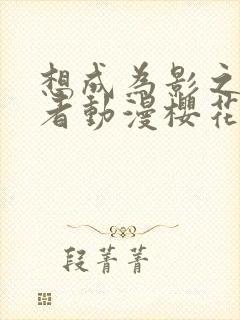 想成為影之
者動漫櫻花
段菁菁